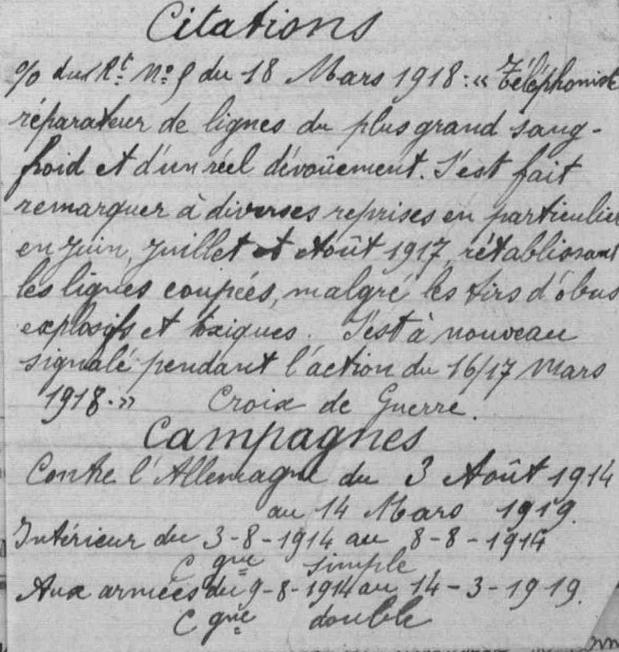 Citations
% du Rt No 9 du 18 Mars 1918 : « Téléphoniste
réparateur de lignes du plus grand sang-
froid et d'un réel dévoûement. S'est fait
remarquer à diverses reprises en particulier
en Juin, Juillet et Août 1917, rétablissant
les lignes coupées, malgré les tirs d'obus
explosifs et toxiques. S'est à nouveau
signalé pendant l'action du 16/17 Mars
1918. » Croix de Guerre.
Campagnes
Contre l'Allemagne du 3 Août 1914
au 14 Mars 1919.
Intérieur du 3-8-1914 au 8-8-1914
Cgne simple
Aux armées du 9-8-1914 au 14-3-1919.
Cgne double